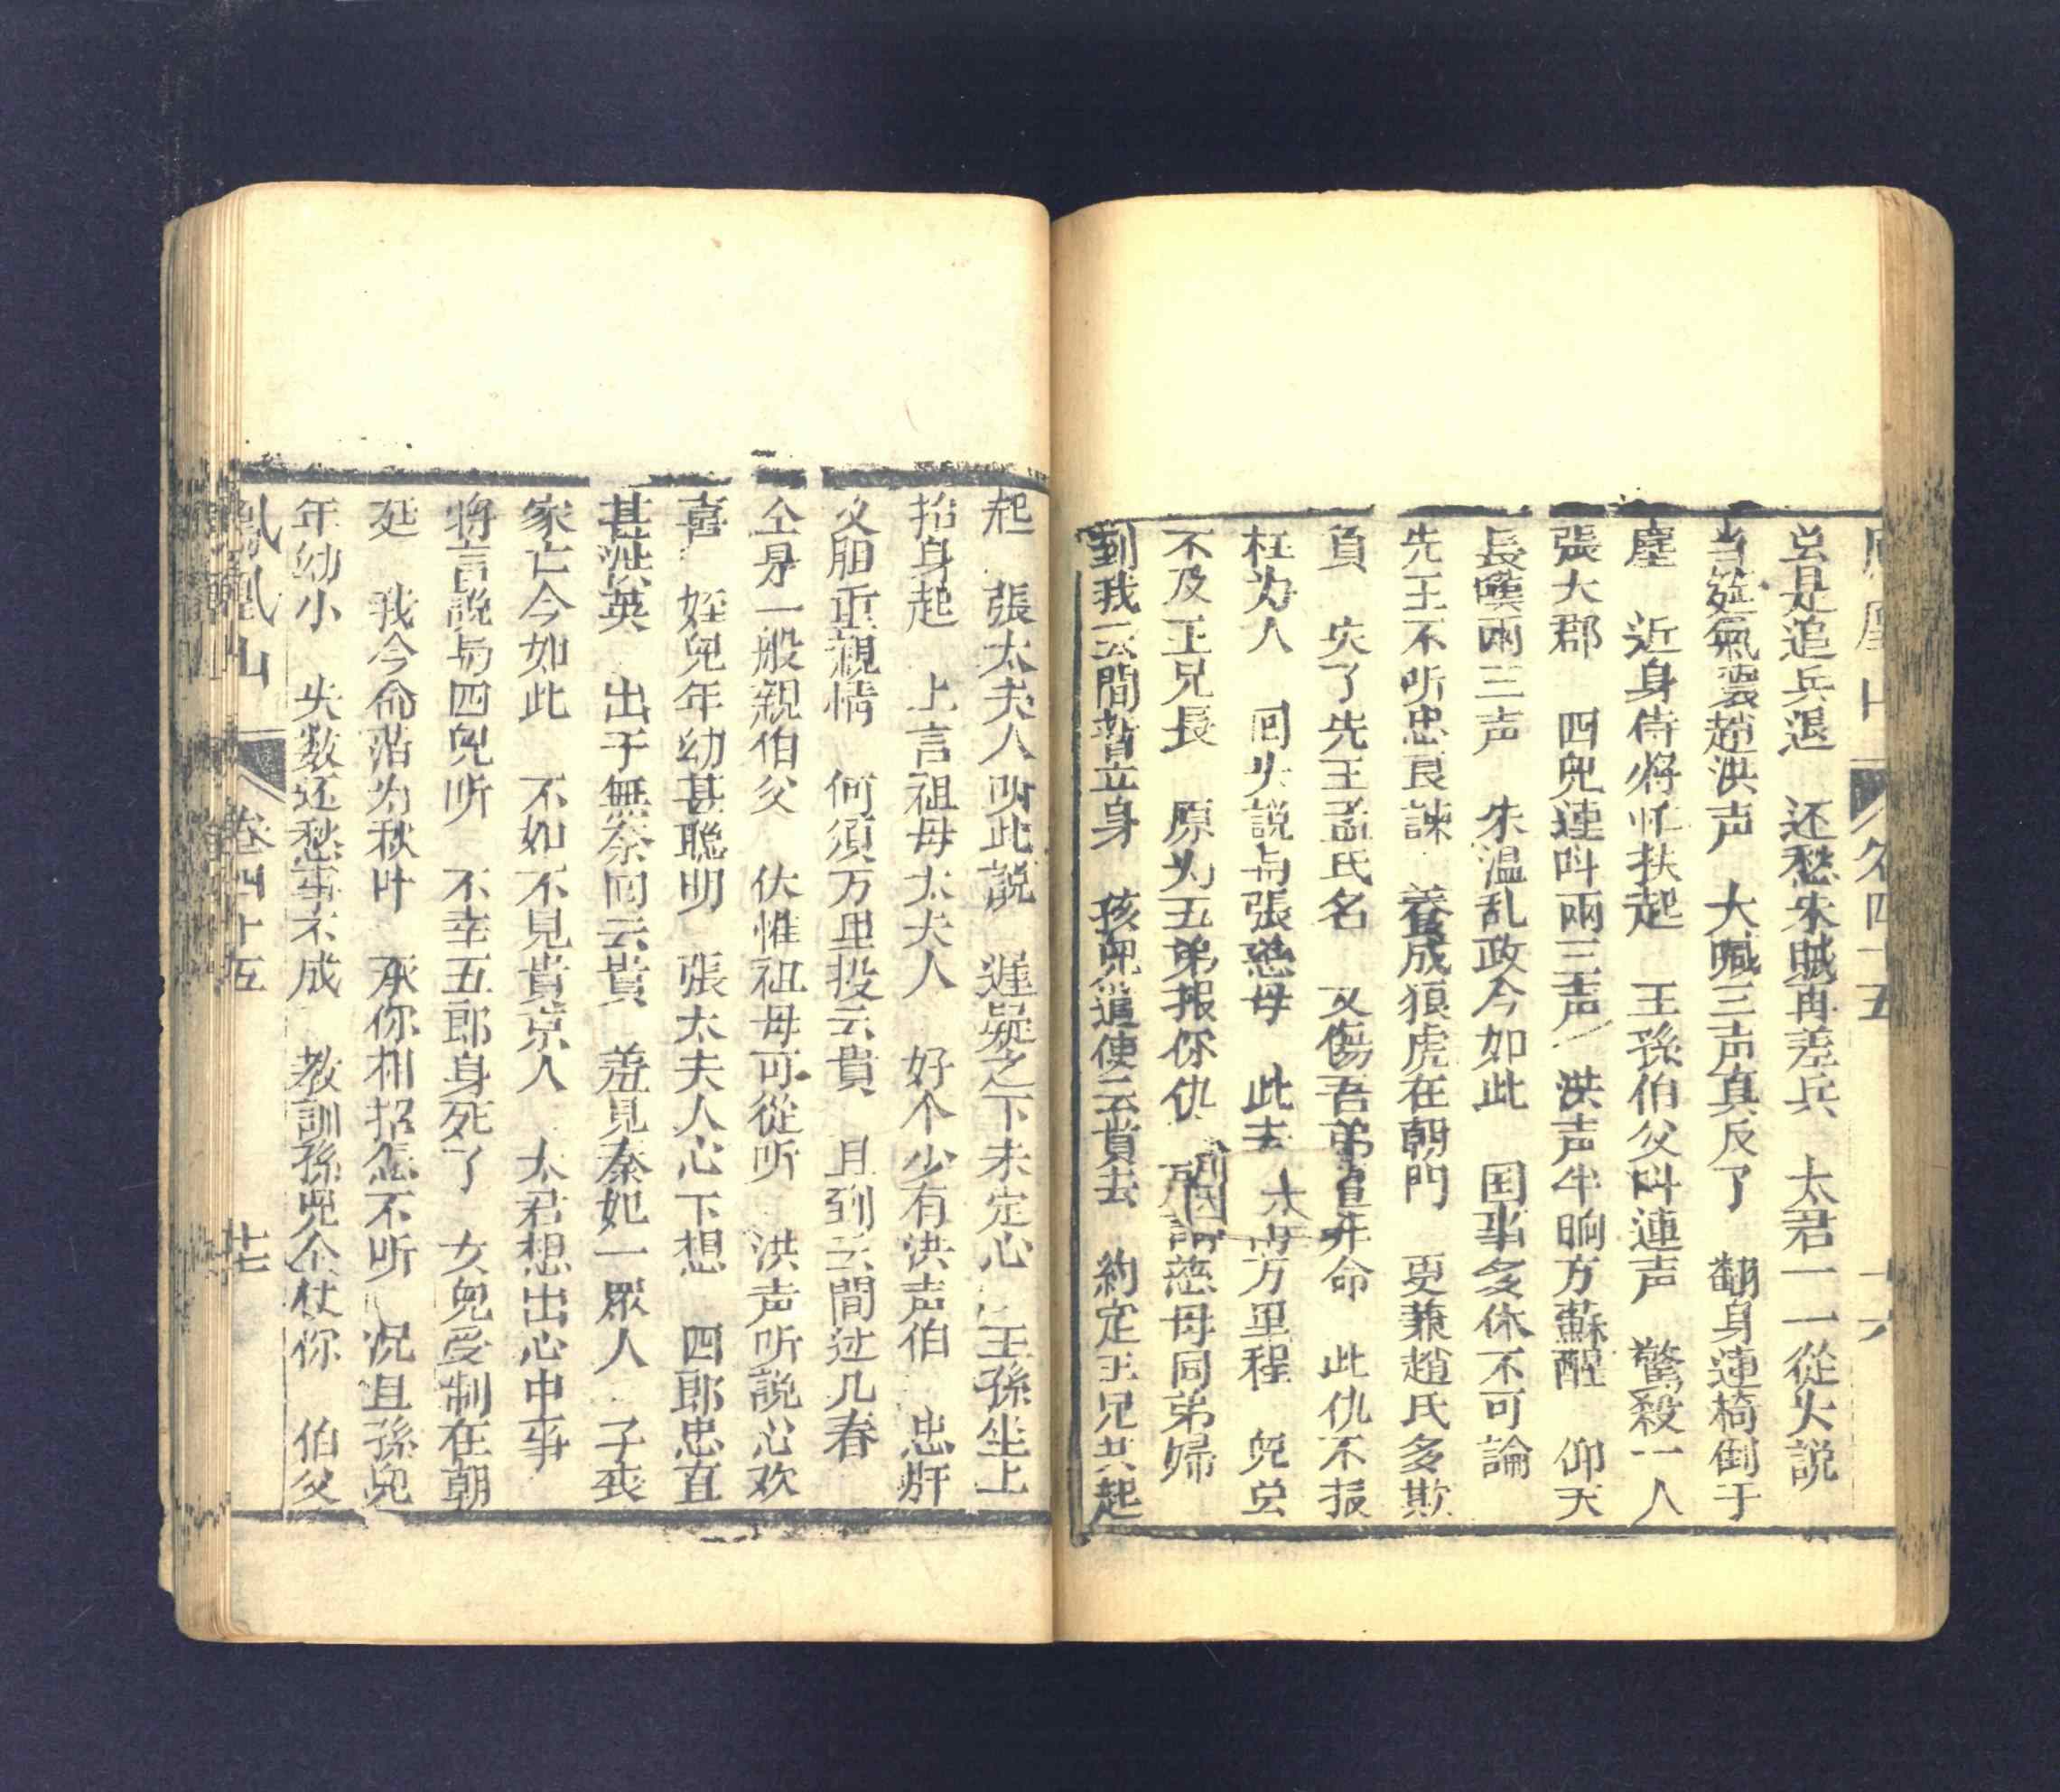 鳳凰山 卷四十五 十六
总是追兵退 还愁朱賊再差兵 太君一一從头説
当筵氣壞趙洪声 大喊三声真反了 翻身連椅倒于
塵 近身侍將忙扶起 王孫伯父叫連声 驚殺一人
張大郡 四兒連叫兩三声 洪声半晌方蘇醒 仰天
長嘆兩三声 朱温乱政今如此 国事多休不可論
先王不听忠良諫 養成狼虎在朝門 更兼趙氏多欺
負 灾了先王孟氏名 又傷吾弟 命 此仇不报
枉为人 回头説与張慈母 此去 万里程 兒总
不及王兄長 原为五弟报你仇 慈母同弟婦
到我云間暫立身 孩兒道使云貴去 約定王兄共起
起 張太夫人听此説 遲疑之下未定心 王孫坐上
抬身起 上言祖母太夫人 好个少有洪声伯 忠肝
义胆重親情 何須万里投云貴 且到云間过几春
仝是一般親伯父 伏惟祖母可從听 洪声听説心欢
喜 姪兒年幼甚聡明 張太夫人心下想 四郎忠直
甚洪英 出乎無奈回云貴 羞見秦妃一眾人 子丧
家亡今如此 不如不見貴京人 太君想出心中事
將言説与四兒听 不幸五郎身死了 女兒受制在朝
廷 我今命落为秋叶 承你相招怎不听 况且孫兒
年幼小 失教还愁事不成 教訓孫兒仝仗你 伯父
鳳凰山 卷四十五 十七